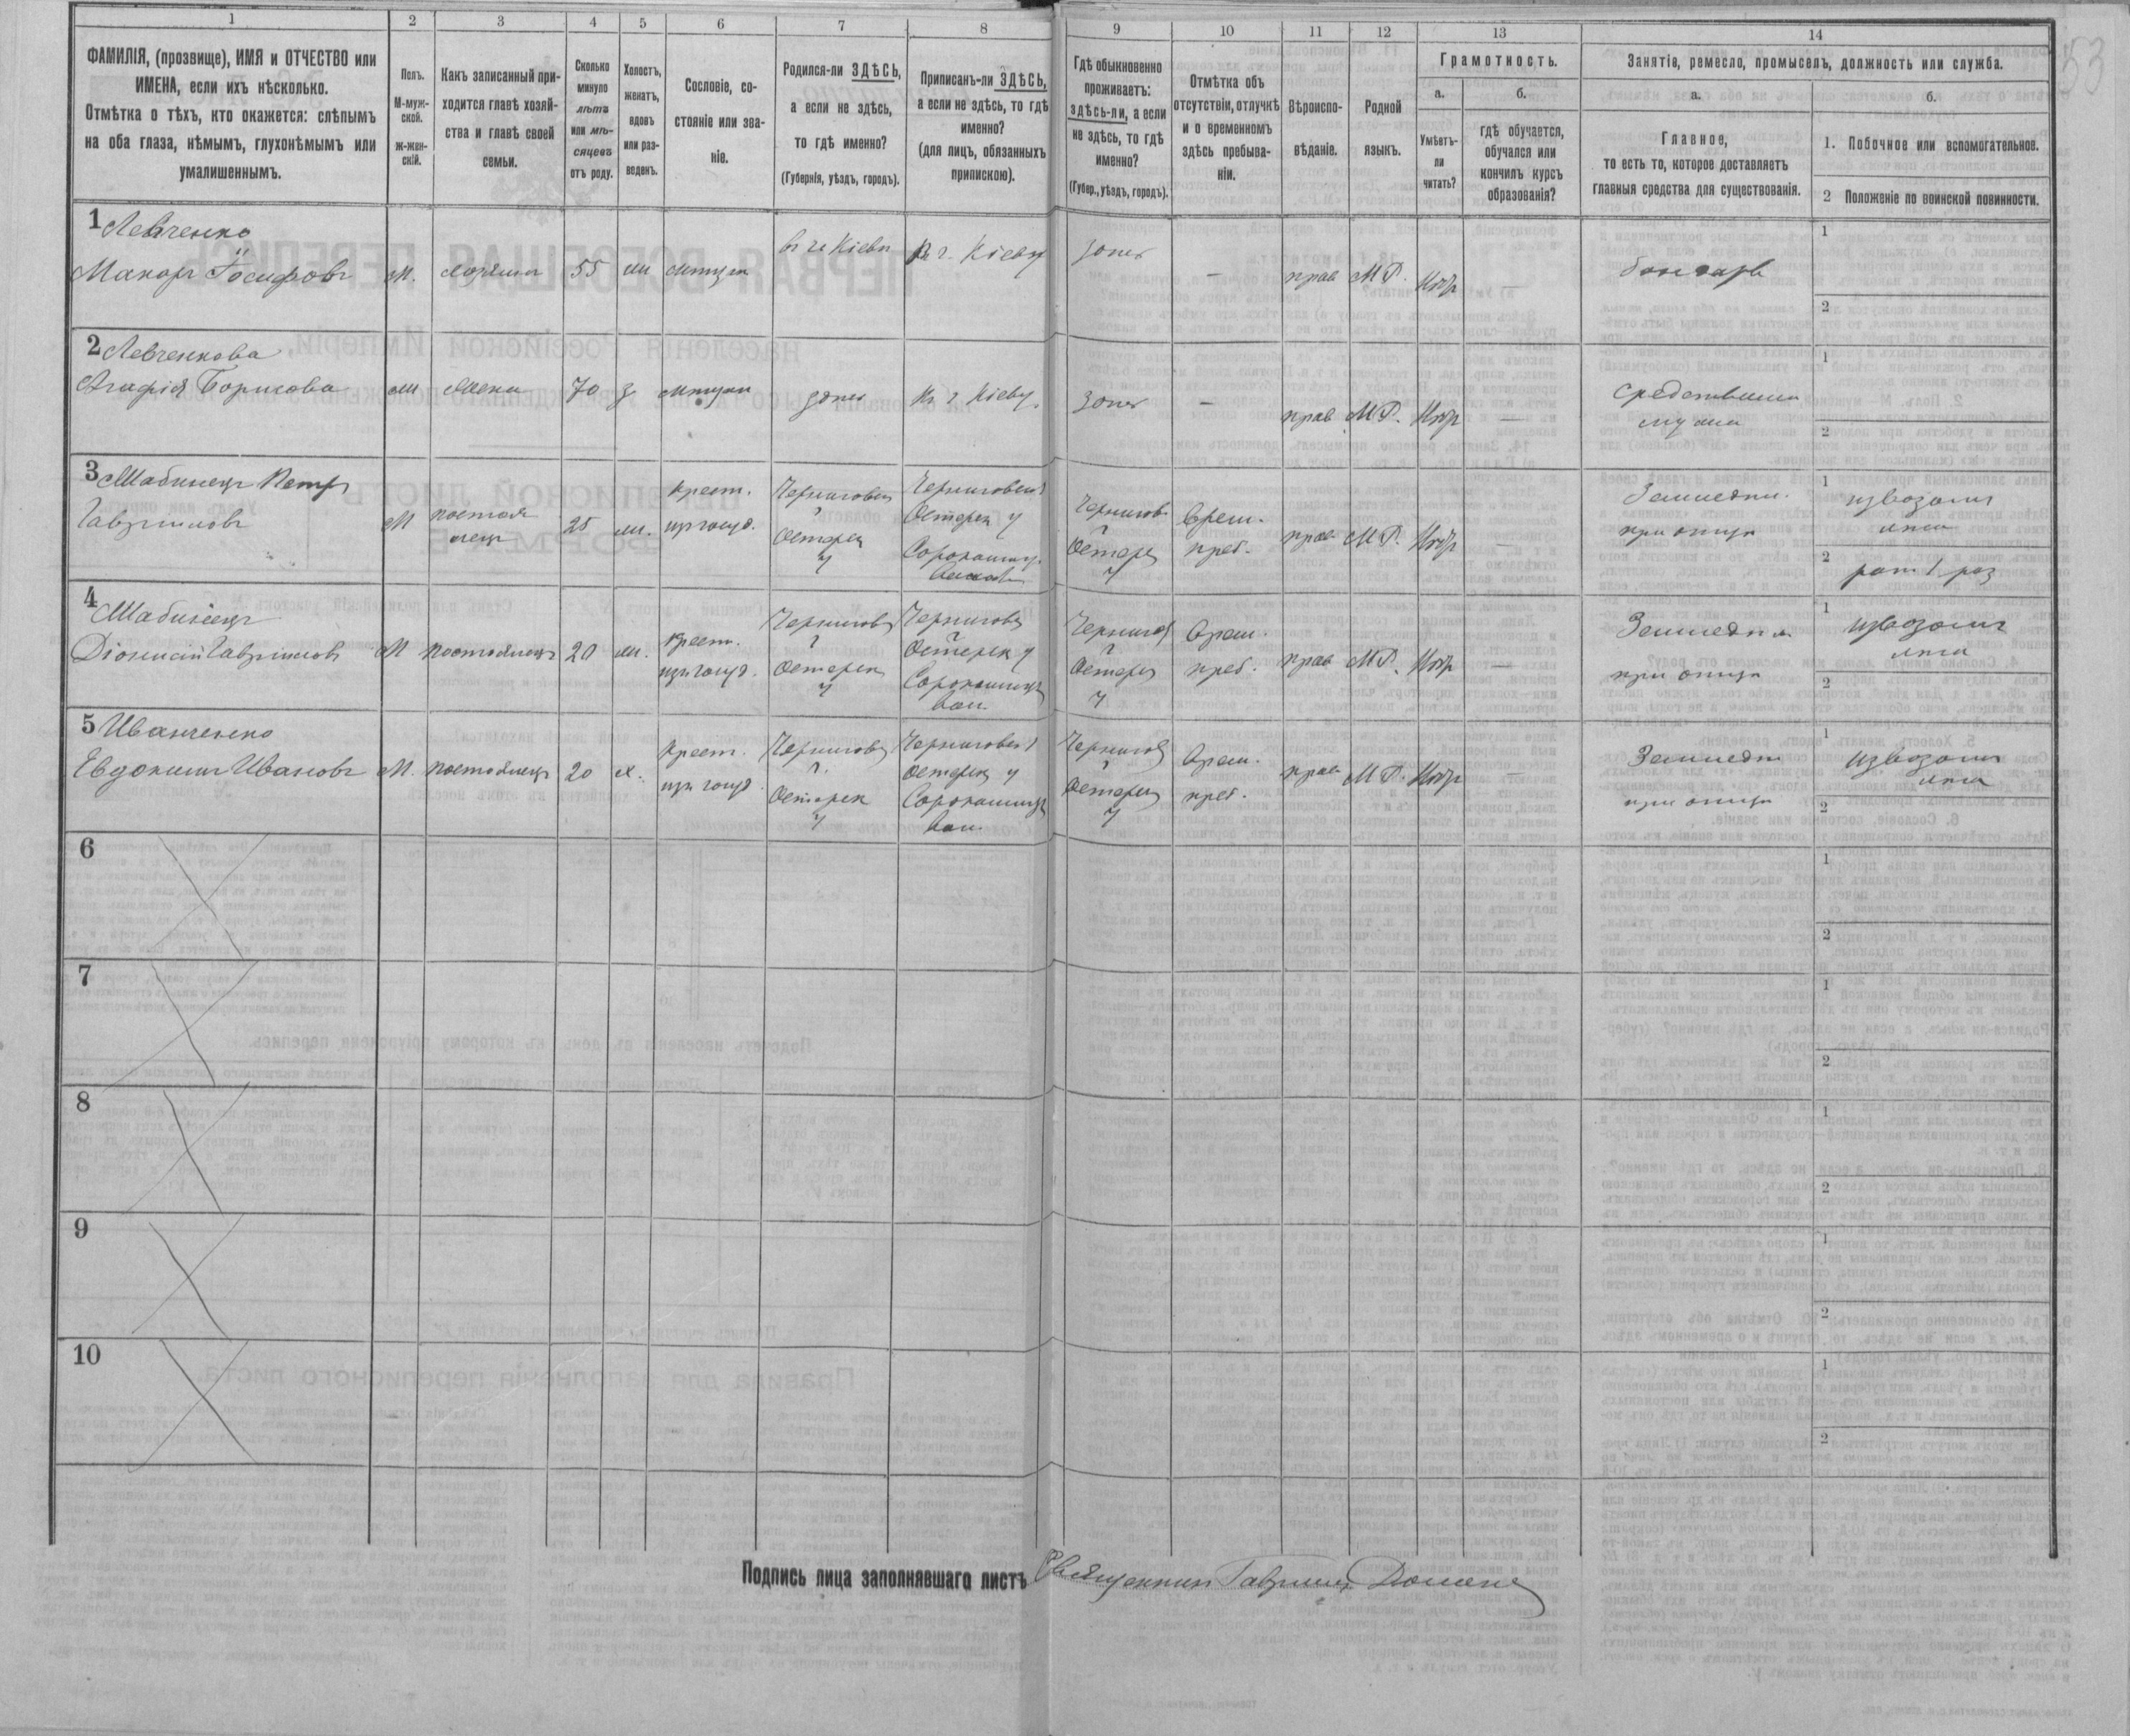 53
1
2
3
4
5
6
7
8
9
10
11
12
13
14
ФАМИЛІЯ, (прозвище), ИМЯ и ОТЧЕСТВО или
ИМЕНА, если ихъ нѣсколько.
Отмѣтка о тѣхъ, кто окажется: слѣпымъ
на оба глаза, нѣмымъ, глухонѣмымъ или
умалишеннымъ.
Полъ.
М-муж-
ской.
ж-жен-
скій.
Какъ записанный при-
ходится главѣ хозяй-
ства и главѣ своей
семьи.
Сколько
минуло
лѣтъ
или мѣ-
сяцевъ
отъ роду.
Холостъ,
женатъ,
вдовъ
или раз-
веденъ.
Сословіе, со-
стояніе или зва-
ніе.
Родился-ли ЗДѢСЬ,
а если не здѣсь,
то гдѣ именно?
(Губернія, уѣздъ, городъ).
Приписанъ-ли ЗДѢСЬ,
а если не здѣсь, то гдѣ
именно?
(для лицъ, обязанныхъ
припискою).
Гдѣ обыкновенно
проживаетъ:
здѣсь-ли, а если
не здѣсь, то гдѣ
именно?
(Губер., уѣздъ, городъ).
Отмѣтка объ
отсутствіи, отлучкѣ
и о временномъ
здѣсь пребыва-
ніи.
Вѣроиспо-
вѣданіе.
Родной
языкъ.
Грамотность.
а.
Умѣетъ-
ли
читать?
б.
гдѣ обучается,
обучался или
кончилъ курсъ
образованія?
Занятіе, ремесло, промыселъ, должность или служба.
а.
Главное,
то есть то, которое доставляетъ
главныя средства для существованія.
б.
1. Побочное или вспомогательное.
2 Положеніе по воинской повинности.
1 Левченко
Макаръ Іосифовъ
М.
хозяинъ
55
ж
мѣщан
въ г. Кіевѣ
Къ г. Кіеву
здѣсь
—
прав
М Р.
Негр
—
бондарь
1
2
2 Левченкова
Агафія Борисова
ж
жена
70
з
мѣщан
здѣсь
Къ г. Кіеву.
здѣсь
—
прав
М Р.
Негр
—
средствами
мужа
1
2
3 Шабинецъ Петръ
Гавріиловъ
М
постоя
лецъ
25
ж.
крест.
изъ госуд.
Чернигов
г
Остерск
у
Остерск у
Чернигов
г
Остерск
у
Врем.
преб.
прав
М Р.
Негр
—
Земледѣл.
при отцѣ
1
извозомъ
2
рат. 1 раз
4
Шабинецъ
Діонисій Гавріиловъ
М
постоялецъ
20
ж.
крест.
изъ госуд.
Чернигов
г
Остерск
у
Чернигов
г
Остерск у
вол.
Чернигов
г
Остерск
у
Врем.
преб.
прав
М Р.
Негр
—
Земледѣл
при отцѣ
1
извозомъ
2
5 Иванченко
Евдокимъ Ивановъ
М.
постоялецъ
20
х.
крест.
изъ госуд
Чернигов
г.
Остерск
у
Остерск у
вол.
Чернигов
г
Остерск
у
Врем.
преб.
прав
М Р.
Негр
—
Земледѣл
при отцѣ
1
извозомъ
2
6
1
2
7
1
2
8
1
2
9
1
2
10
1
2
Подпись лица заполнявшаго листъ Священникъ Гавріилъ